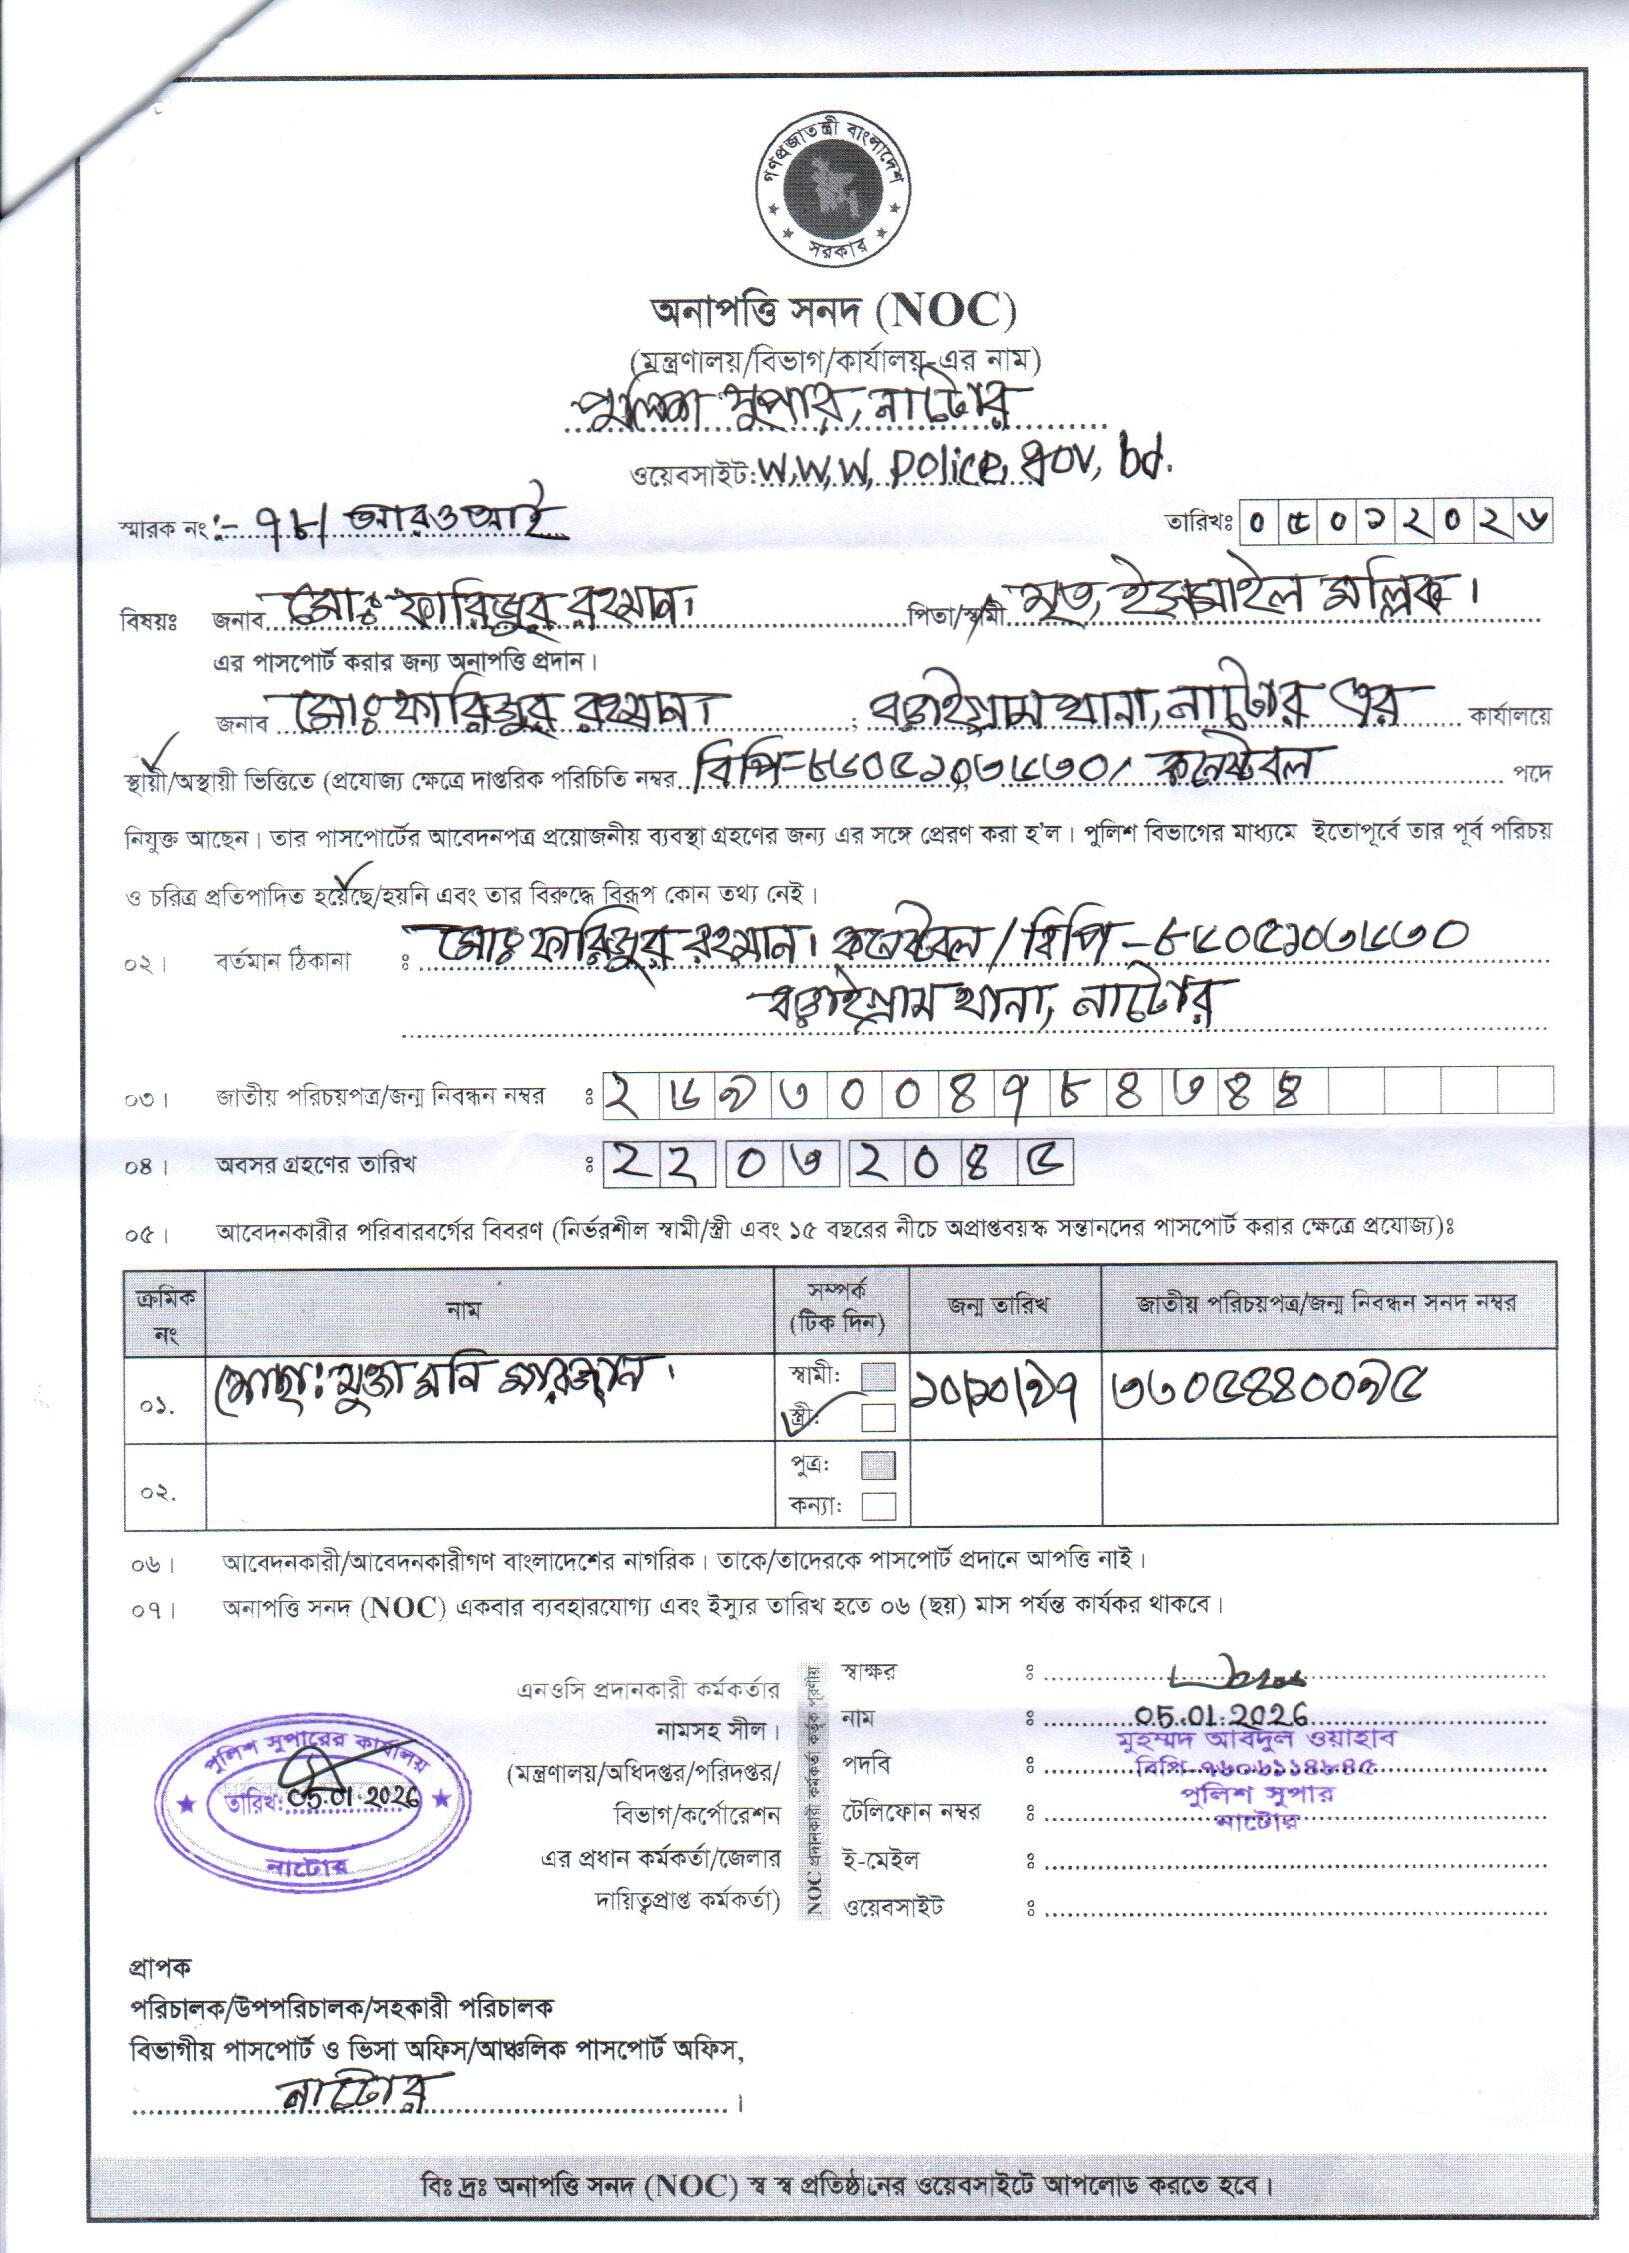 গণপ্রজাতন্ত্রী বাংলাদেশ
সরকার
অনাপত্তি সনদ (NOC)
(মন্ত্রণালয়/বিভাগ/কার্যালয়-এর নাম)
পুলিশ সুপার, নাটোর
ওয়েবসাইট: W.W.W. police. gov. bd.
স্মারক নং :- ৭৮/ আরওআই
তারিখঃ ০৫০১২০২৬
বিষয়ঃ জনাব মোঃ ফারিজুর রহমান। পিতা/স্বামী মৃত, ইসমাইল মল্লিক।
এর পাসপোর্ট করার জন্য অনাপত্তি প্রদান।
জনাব মোঃ ফারিজুর রহমান। ; বড়াইগ্রাম থানা, নাটোর এর কার্যালয়ে
স্থায়ী/অস্থায়ী ভিত্তিতে (প্রযোজ্য ক্ষেত্রে দাপ্তরিক পরিচিতি নম্বর বিপি- কনেষ্টবল পদে
নিযুক্ত আছেন। তার পাসপোর্টের আবেদনপত্র প্রয়োজনীয় ব্যবস্থা গ্রহণের জন্য এর সঙ্গে প্রেরণ করা হ'ল। পুলিশ বিভাগের মাধ্যমে ইতোপূর্বে তার পূর্ব পরিচয়
ও চরিত্র প্রতিপাদিত হয়েছে/হয়নি এবং তার বিরুদ্ধে বিরূপ কোন তথ্য নেই।
০২। বর্তমান ঠিকানা : মোঃ ফারিজুর রহমান। কনেষ্টবল / বিপি -
বড়াইগ্রাম থানা, নাটোর
০৩। জাতীয় পরিচয়পত্র/জন্ম নিবন্ধন নম্বর : ২৬৯৩০০৪৭৮৪৩৪৪
০৪। অবসর গ্রহণের তারিখ : ২২ ০৩ ২০৪৫
০৫। আবেদনকারীর পরিবারবর্গের বিবরণ (নির্ভরশীল স্বামী/স্ত্রী এবং ১৫ বছরের নীচে অপ্রাপ্তবয়স্ক সন্তানদের পাসপোর্ট করার ক্ষেত্রে প্রযোজ্য)ঃ
ক্রমিক নং নাম সম্পর্ক (টিক দিন) জন্ম তারিখ জাতীয় পরিচয়পত্র/জন্ম নিবন্ধন সনদ নম্বর
০১. মোছা: মুক্তা মনি মারজান। স্বামী: স্ত্রী: ১০/১০/৯৭ ৩৩০৫৪৪০০৯৫
০২. পুত্র: কন্যা:
০৬। আবেদনকারী/আবেদনকারীগণ বাংলাদেশের নাগরিক। তাকে/তাদেরকে পাসপোর্ট প্রদানে আপত্তি নাই।
০৭। অনাপত্তি সনদ (NOC) একবার ব্যবহারযোগ্য এবং ইস্যুর তারিখ হতে ০৬ (ছয়) মাস পর্যন্ত কার্যকর থাকবে।
এনওসি প্রদানকারী কর্মকর্তার
নামসহ সীল।
(মন্ত্রণালয়/অধিদপ্তর/পরিদপ্তর/
বিভাগ/কর্পোরেশন
এর প্রধান কর্মকর্তা/জেলার
দায়িত্বপ্রাপ্ত কর্মকর্তা)
NOC প্রদানকারী কর্মকর্তা কর্তৃক পূরণীয়
স্বাক্ষর :
নাম : 05.01.2026
মুহম্মদ আবদুল ওয়াহাব
পদবি : বিপি-৭৬০৬১১৪৮৪৫
পুলিশ সুপার
টেলিফোন নম্বর : নাটোর
ই-মেইল :
ওয়েবসাইট :
পুলিশ সুপারের কার্যালয়
তারিখ: 05.01.2026
নাটোর
প্রাপক
পরিচালক/উপপরিচালক/সহকারী পরিচালক
বিভাগীয় পাসপোর্ট ও ভিসা অফিস/আঞ্চলিক পাসপোর্ট অফিস,
নাটোর।
বিঃ দ্রঃ অনাপত্তি সনদ (NOC) স্ব স্ব প্রতিষ্ঠানের ওয়েবসাইটে আপলোড করতে হবে।